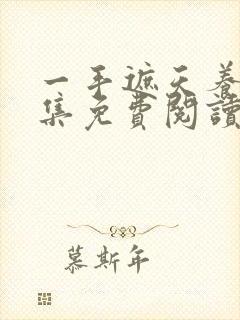 一手遮天養
集免費閱讀
慕斯年